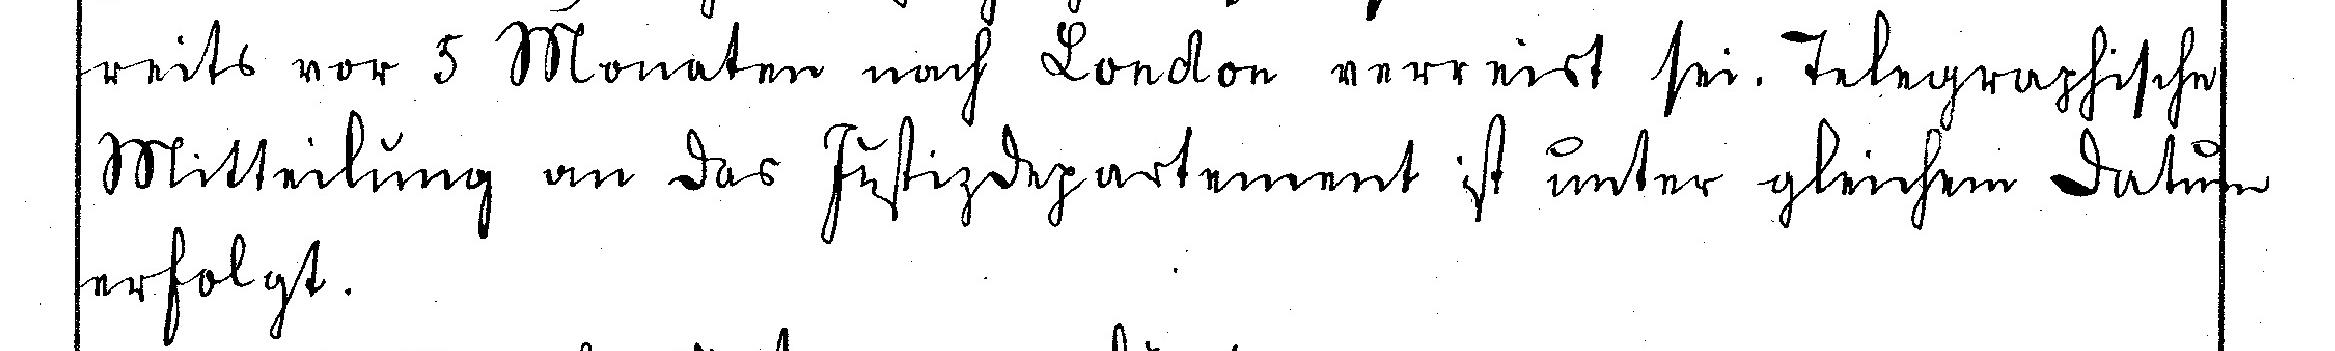 reits vor 5 Monaten nach London verreist sei. Telegraphische
Mitteilung an das Justizdepartement ist unter gleichem Datum
erfolgt.